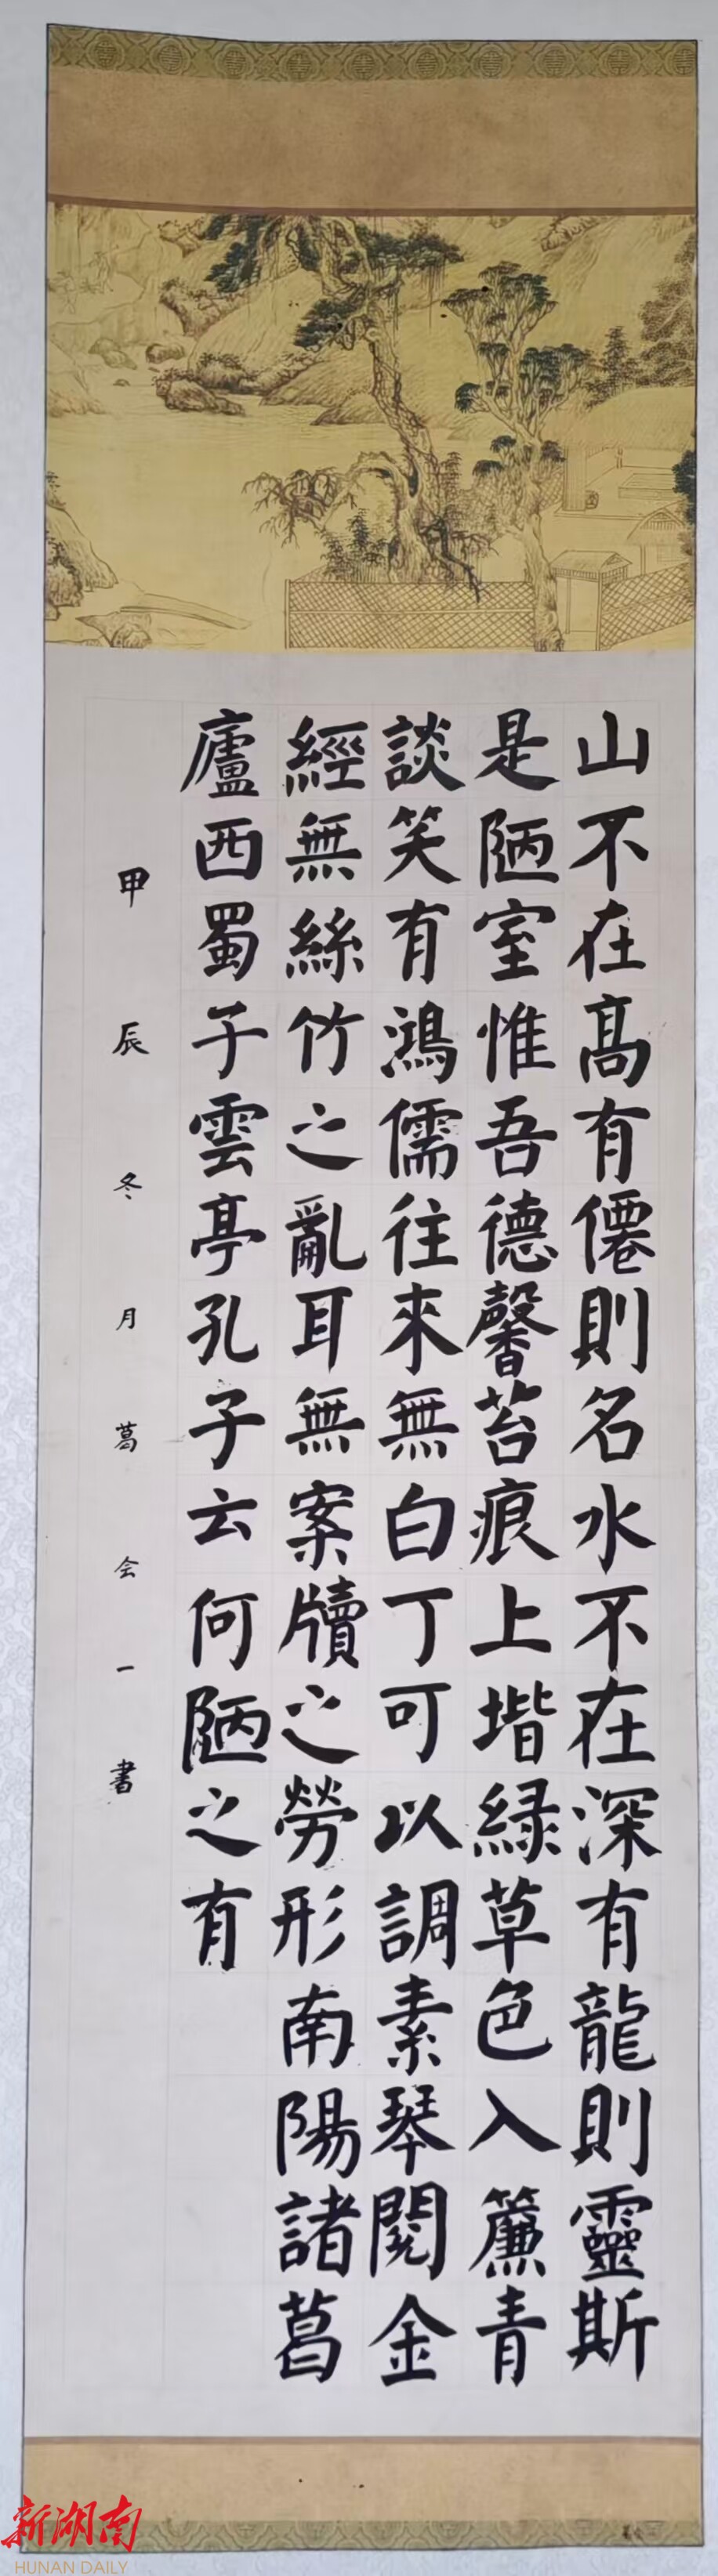 山不在高有僊則名水不在深有龍則靈斯
是陋室惟吾德馨苔痕上堦緑草色入簾青
談笑有鴻儒往來無白丁可以調素琴閱金
經無絲竹之亂耳無案牘之勞形南陽諸葛
廬西蜀子雲亭孔子云何陋之有
甲辰冬月葛会一書
新湖南
HUNAN DAILY